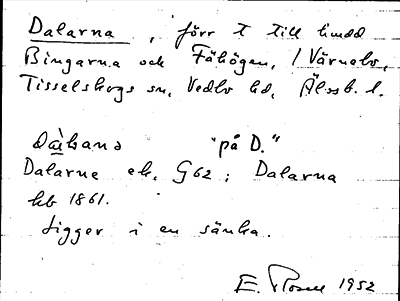 Dalarna, förr t till hmdd
Bingarna och Fåhögen, / Värnebo,
Tisselskogs sn, Vedbo hd, Älvsb. l.
"på D."
Dalarne ek. G62; Dalarna
hb 1861.
Ligger i en sänka.
E. Rosell 1952